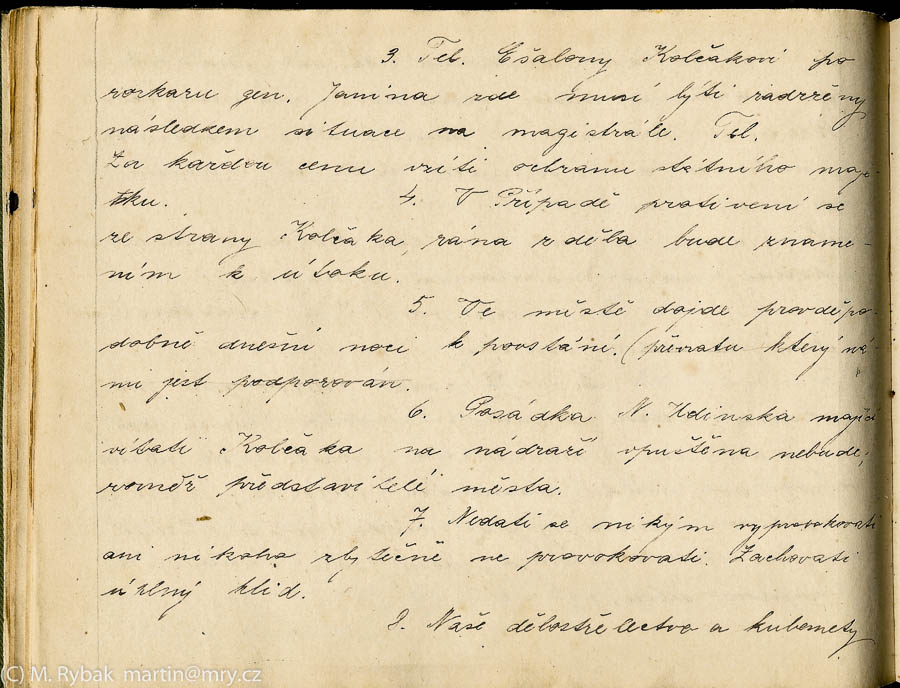 3. Tel. Ešalony Kolčakovi po
rozkazu gen. Janina zde musí býti zadrženy
následkem situace na magistrále. Tel.
Za každou cenu vzíti ochranu státního maje
tku. 4. V Případě protivení se
ze strany Kolčáka, rána z děla bude zname-
ním k útoku.
5. Ve městě dojde pravděpo-
dobně dnešní noci k povstání. (převratu který ná-
mi jest podporován.
6. Posádka N. Udinska mající
vítati Kolčáka na nádraží vpuštěna nebude,
rovněž představitelé města.
7. Nedati se nikým vyprovokovati
ani nikoho zbytečně ne provokovati. Zachovati
úplný klid.
8. Naše dělostřelectvo a kulomety
(C) M. Rybak martin@mry.cz